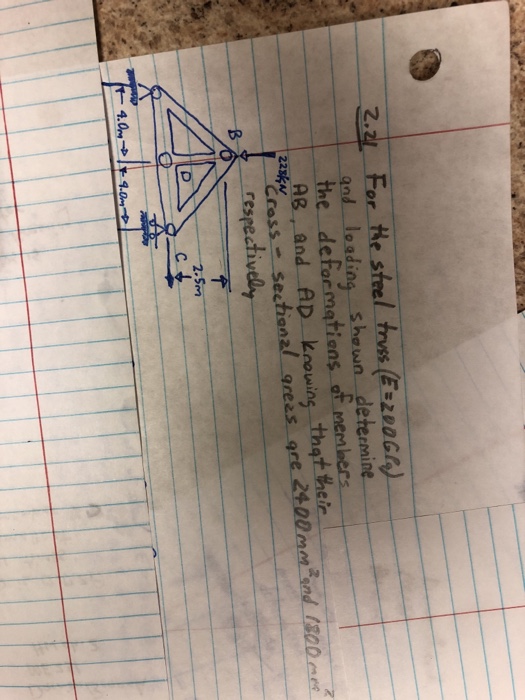 2.21 For the steel truss (E=200GPa)
and loading shown determine
the deformations of members
AB, and AD knowing that their
Cross-sectional areas are 2400mm² and 1800mm²
respectively
228kN
B
D
C
2.5m
4.0m
4.0m